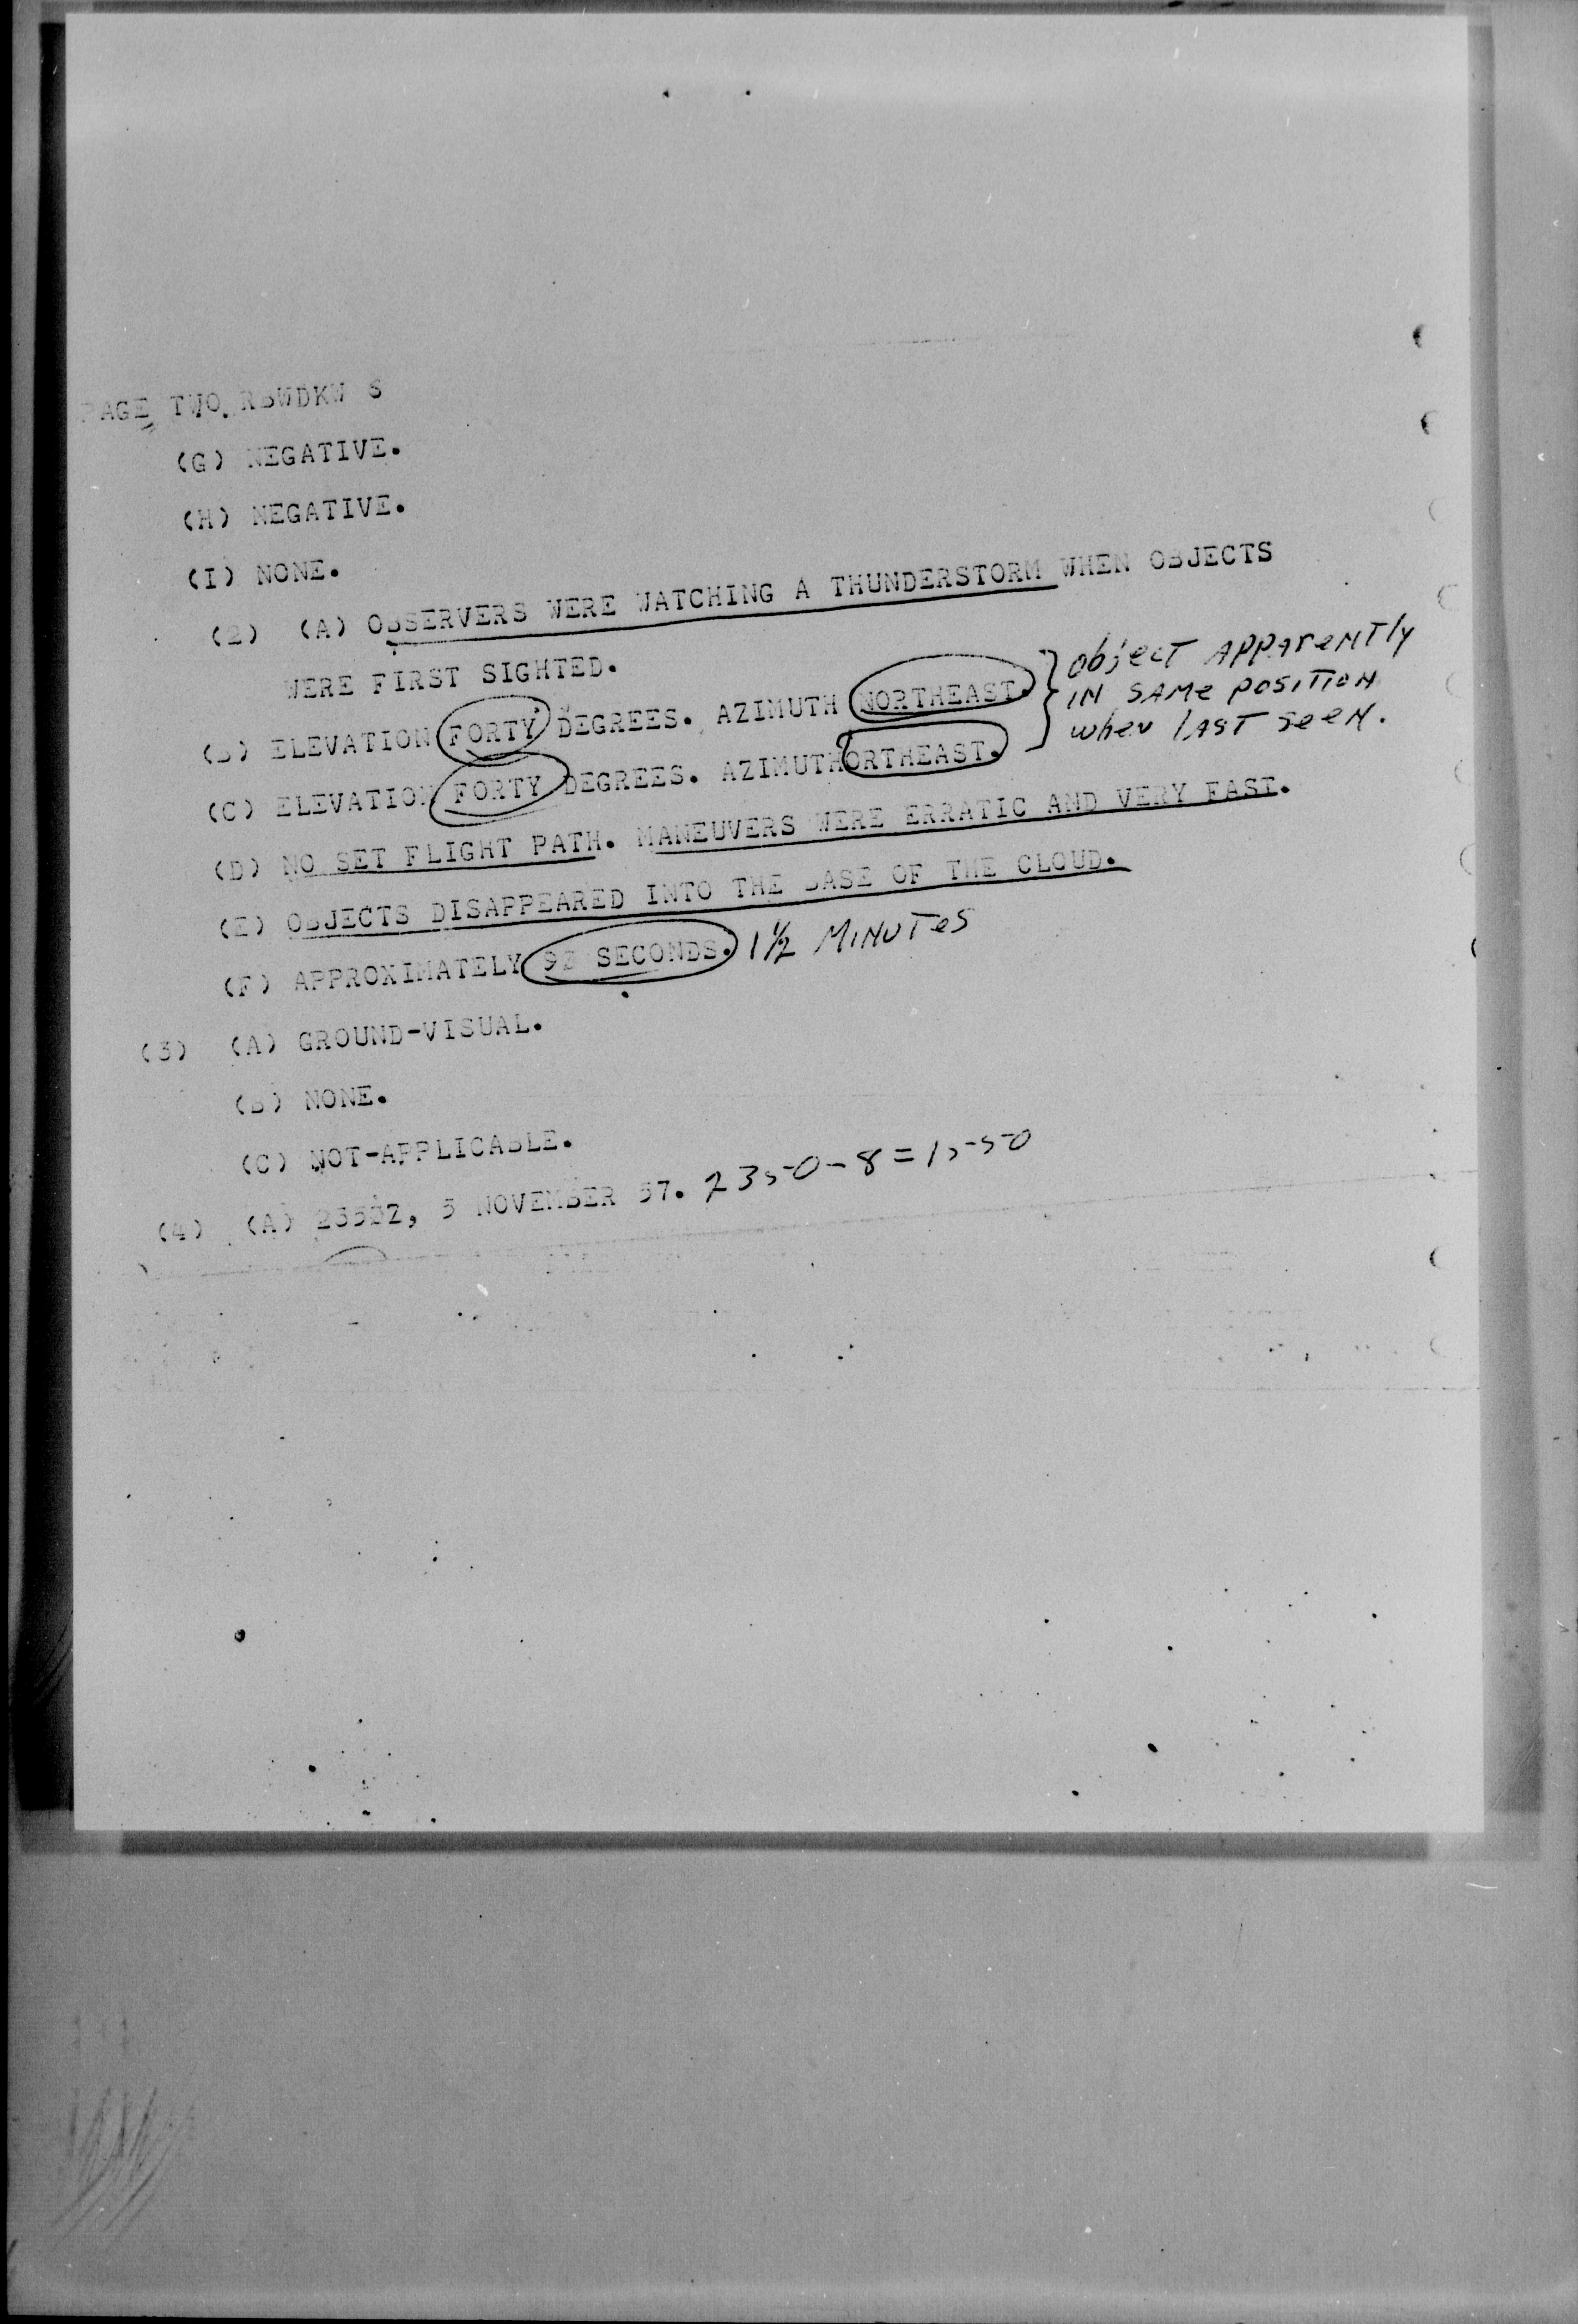 PAGE TWO RBWDKW 8
(G) NEGATIVE.
(H) NEGATIVE.
(I) NONE.
(2) (A) OBSERVERS WERE WATCHING A THUNDERSTORM WHEN OBJECTS
WERE FIRST SIGHTED.
(B) ELEVATION FORTY DEGREES. AZIMUTH NORTHEAST. } object APPArently
(C) ELEVATION FORTY DEGREES. AZIMUTHORTHEAST. IN SAMe POSITION
when LAST seen.
(D) NO SET FLIGHT PATH. MANEUVERS WERE ERRATIC AND VERY FAST.
(E) OBJECTS DISAPPEARED INTO THE BASE OF THE CLOUD.
(F) APPROXIMATELY SECONDS. 1 1/2 MINUTes
(3) (A) GROUND-VISUAL.
(B) NONE.
(C) NOT-APPLICABLE.
(4) (A) NOVEMBER 57. 2350-8=1550